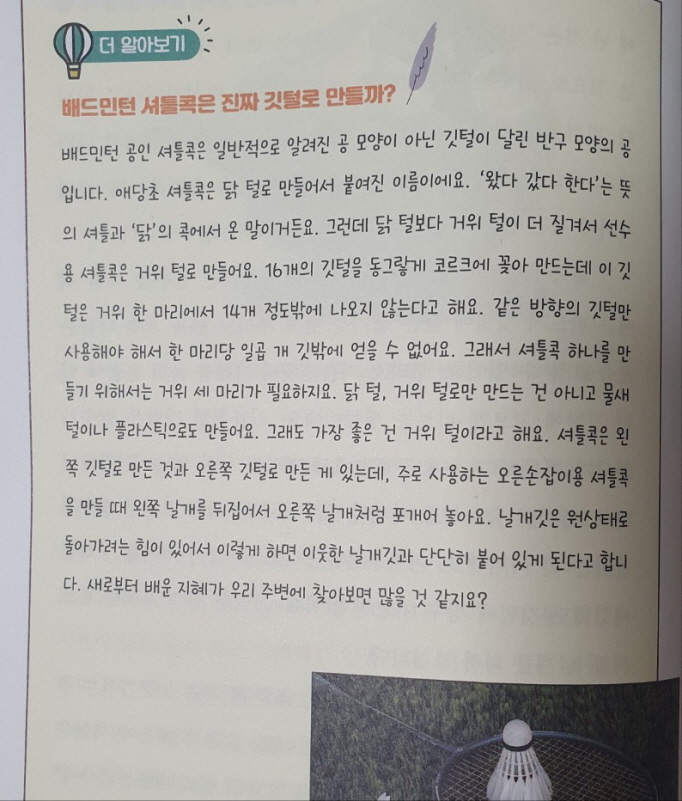 더 알아보기
배드민턴 셔틀콕은 진짜 깃털로 만들까?
배드민턴 공인 셔틀콕은 일반적으로 알려진 공 모양이 아닌 깃털이 달린 반구 모양의 공
입니다. 애당초 셔틀콕은 닭 털로 만들어서 붙여진 이름이에요. ‘왔다 갔다 한다’는 뜻
의 셔틀과 ‘닭’의 콕에서 온 말이거든요. 그런데 닭 털보다 거위 털이 더 질겨서 선수
용 셔틀콕은 거위 털로 만들어요. 16개의 깃털을 동그랗게 코르크에 꽂아 만드는데 이 깃
털은 거위 한 마리에서 14개 정도밖에 나오지 않는다고 해요. 같은 방향의 깃털만
사용해야 해서 한 마리당 일곱 개 깃밖에 얻을 수 없어요. 그래서 셔틀콕 하나를 만
들기 위해서는 거위 세 마리가 필요하지요. 닭 털, 거위 털로만 만드는 건 아니고 물새
털이나 플라스틱으로도 만들어요. 그래도 가장 좋은 건 거위 털이라고 해요. 셔틀콕은 왼
쪽 깃털로 만든 것과 오른쪽 깃털로 만든 게 있는데, 주로 사용하는 오른손잡이용 셔틀콕
을 만들 때 왼쪽 날개를 뒤집어서 오른쪽 날개처럼 포개어 놓아요. 날개깃은 원상태로
돌아가려는 힘이 있어서 이렇게 하면 이웃한 날개깃과 단단히 붙어 있게 된다고 합니
다. 새로부터 배운 지혜가 우리 주변에 찾아보면 많을 것 같지요?